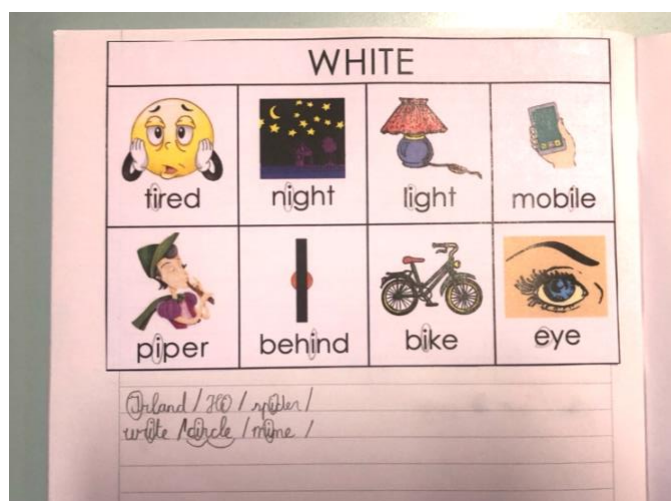 WHITE
tired night light mobile
piper behind bike eye
Irland / Hi / spider /
write / circle / mine /